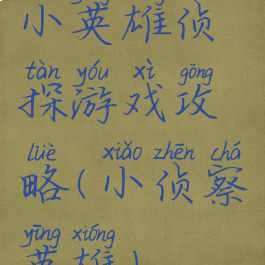 小英雄侦
tàn yóu xì gōng
探游戏攻
lüè xiǎo zhēn chá
略(小侦察
yīng xióng
英雄)